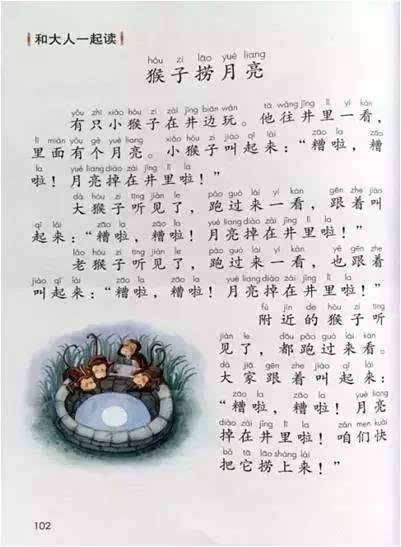 和大人一起读
hóu zi lāo yuè liang
猴子捞月亮
yǒu zhī xiǎo hóu zi zài jǐng biān wán tā wǎng jǐng lǐ yí kàn
有只小猴子在井边玩。他往井里一看，
lǐ miàn yǒu gè yuè liang xiǎo hóu zi jiào qǐ lái zāo la zāo
里面有个月亮。小猴子叫起来：“糟啦，糟
la yuè liang diào zài jǐng lǐ la
啦！月亮掉在井里啦！”
dà hóu zi tīng jiàn le pǎo guò lái yí kàn gēn zhe jiào
大猴子听见了，跑过来一看，跟着叫
qǐ lái zāo la zāo la yuè liang diào zài jǐng lǐ la
起来：“糟啦，糟啦！月亮掉在井里啦！”
lǎo hóu zi tīng jiàn le pǎo guò lái yí kàn yě gēn zhe
老猴子听见了，跑过来一看，也跟着
jiào qǐ lái zāo la zāo la yuè liang diào zài jǐng lǐ la
叫起来：“糟啦，糟啦！月亮掉在井里啦！”
fù jìn de hóu zi tīng
附近的猴子听
jiàn le dōu pǎo guò lái kàn
见了，都跑过来看。
dà jiā gēn zhe jiào qǐ lái
大家跟着叫起来：
zāo la zāo la yuè liang
“糟啦，糟啦！月亮
diào zài jǐng lǐ la zán men kuài
掉在井里啦！咱们快
bǎ tā lāo shàng lái
把它捞上来！”
102